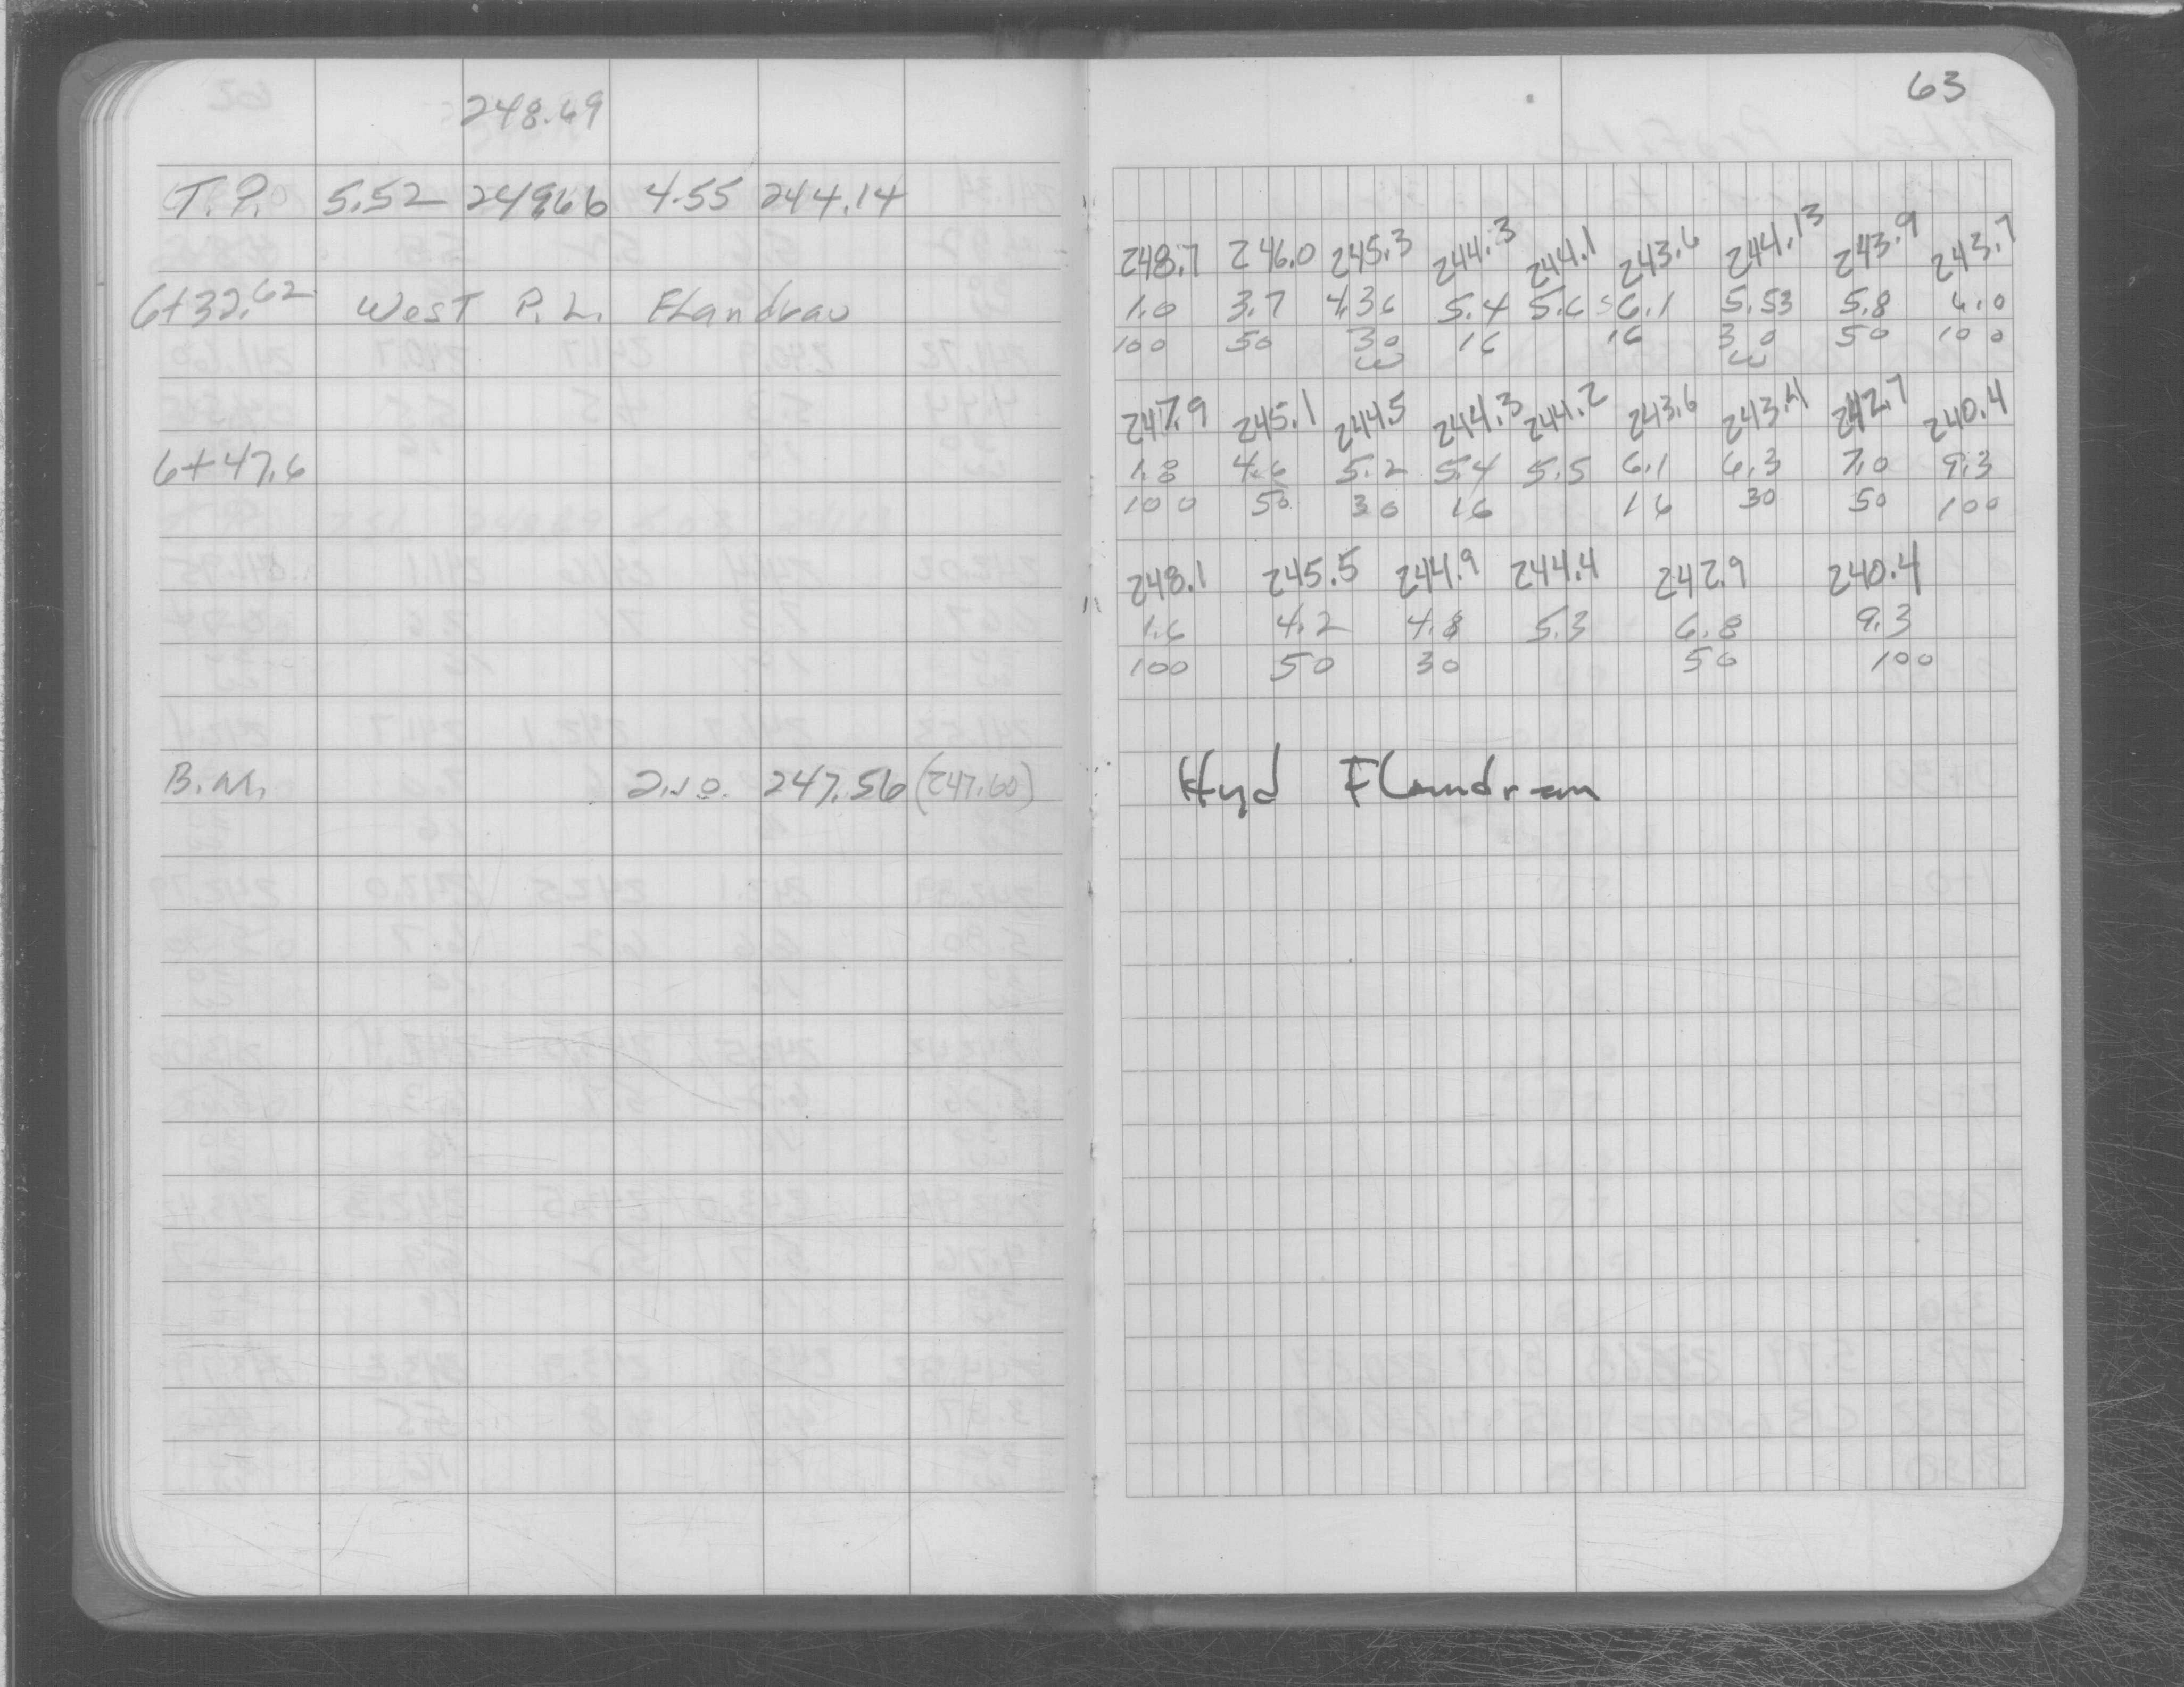 248.69
T.P. 5.52 249.66 4.55 244.14
6+32.62 West P.L. Flandrau
6+47.6
B.M. 2.10 247.56 (247.60)
63
248.7 246.0 245.3 244.3 244.1 243.6 244.13 243.9 243.7
1.0 3.7 4.36 5.4 5.6 6.1 5.53 5.8 6.0
100 50 30 16 16 30 50 100
W W
247.9 245.1 244.5 244.3 244.2 243.6 243.4 242.7 240.4
1.8 4.6 5.2 5.4 5.5 6.1 6.3 7.0 9.3
100 50 30 16 16 30 50 100
248.1 245.5 244.9 244.4 242.9 240.4
1.6 4.2 4.8 5.3 6.8 9.3
100 50 30 50 100
Hyd Flandrau